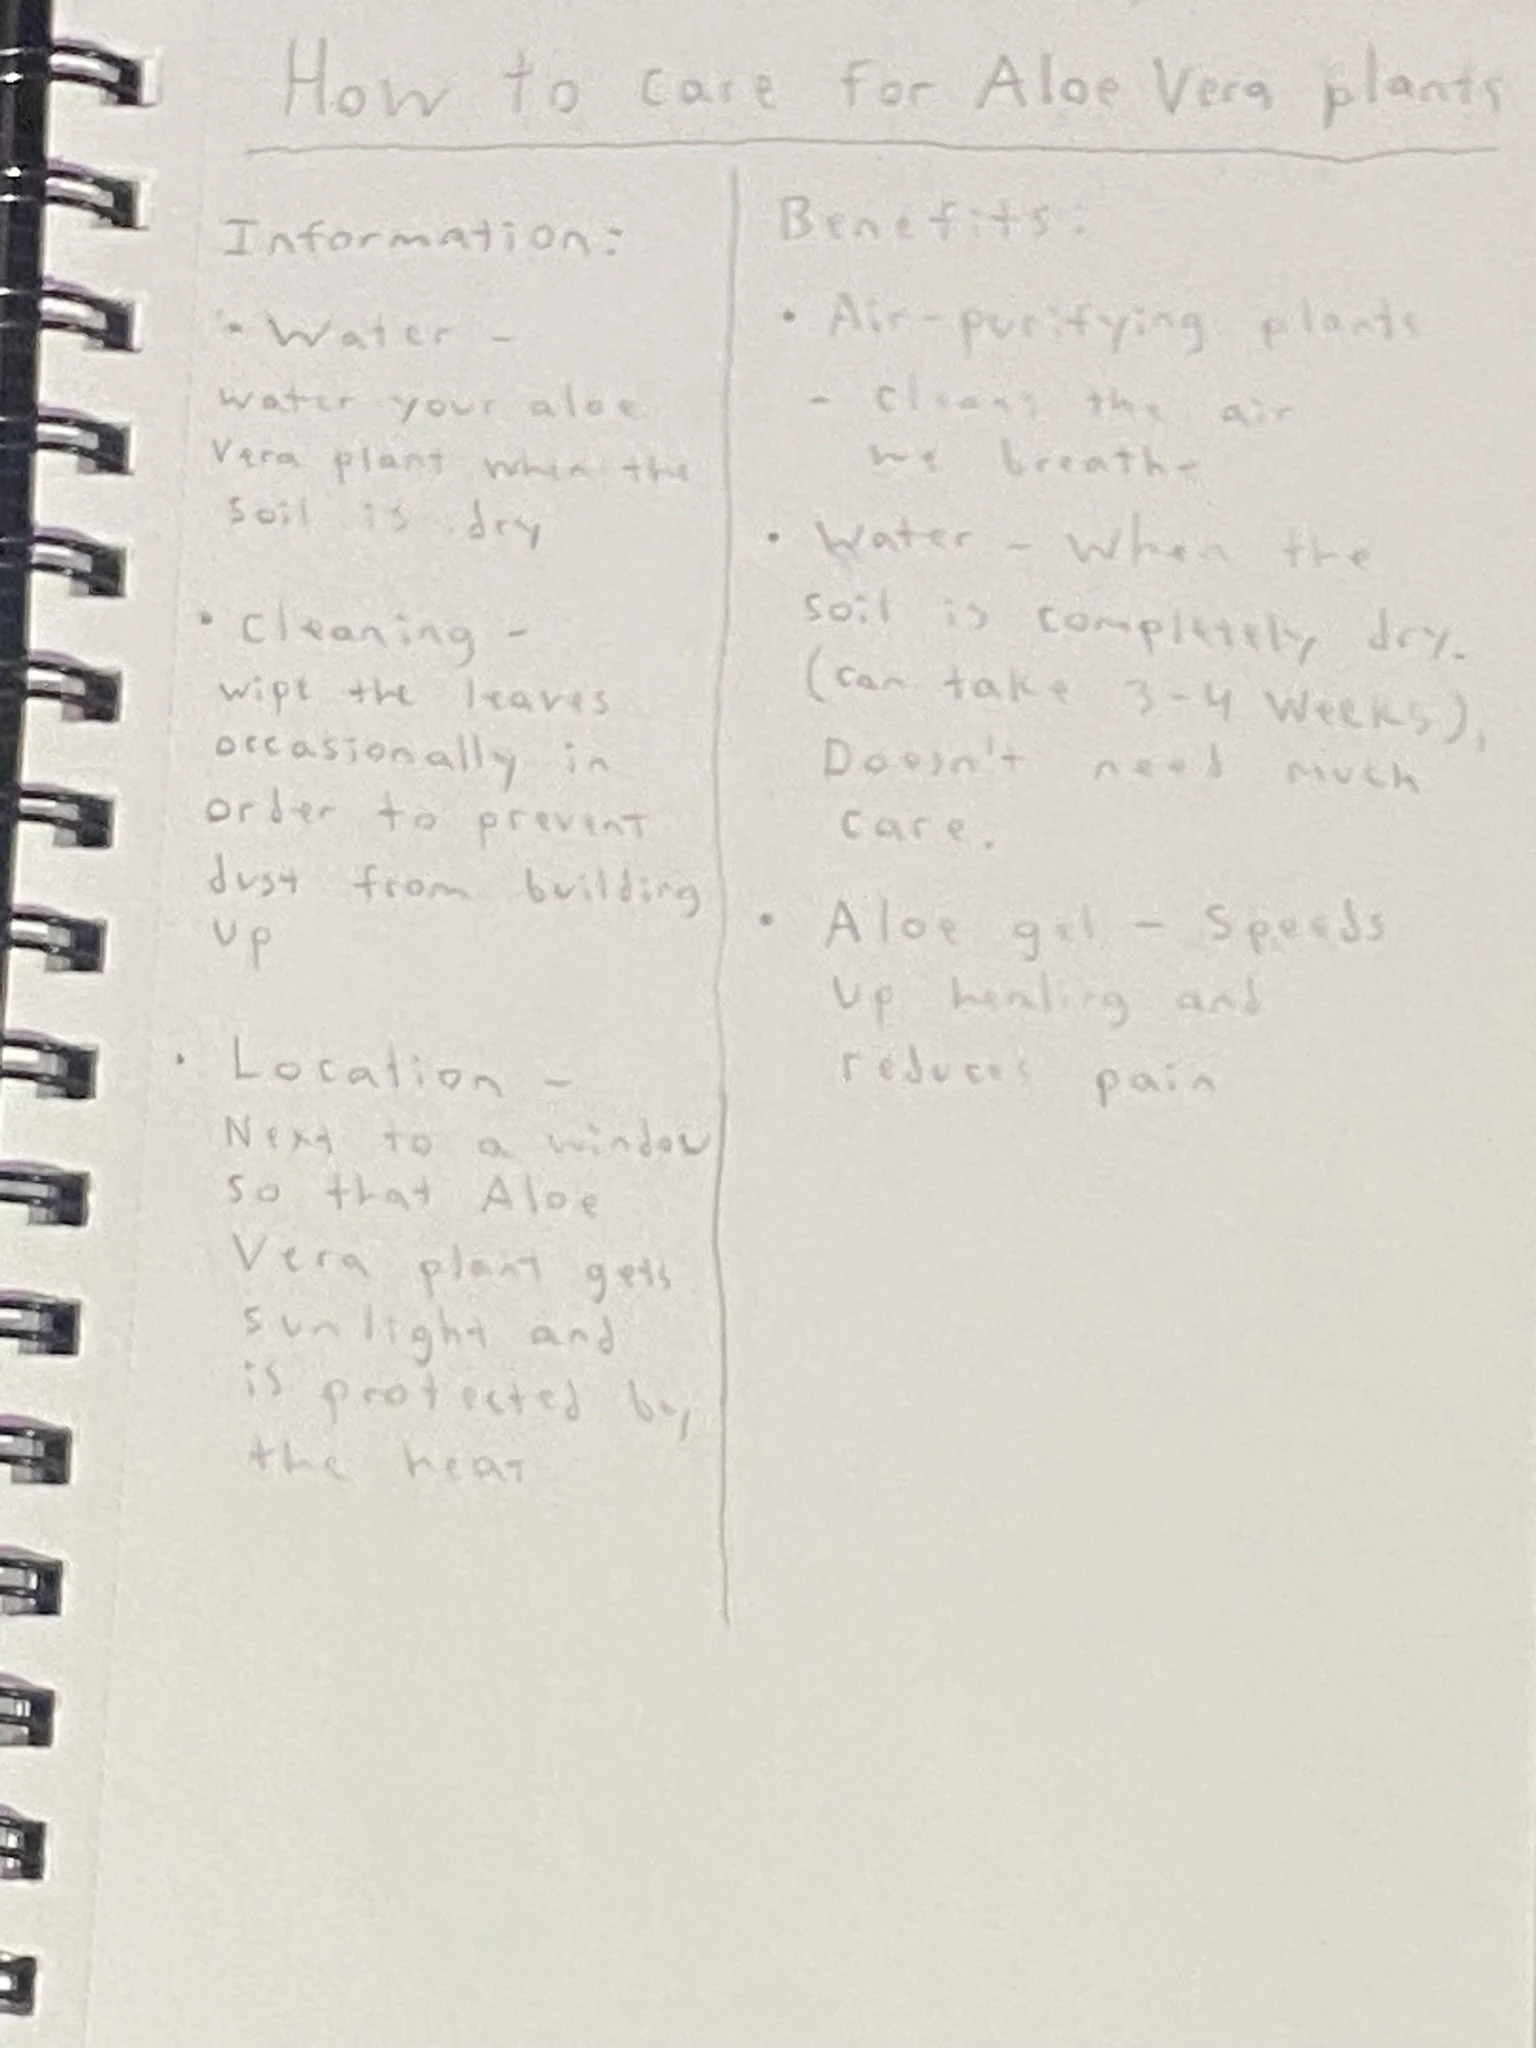 How to care for Aloe Vera plants
Information:
• Water -
water your aloe
vera plant when the
soil is dry
• cleaning -
wipe the leaves
occasionally in
order to prevent
dust from building
up
• Location -
Next to a window
so that Aloe
Vera plant gets
sunlight and
is protected by
the heat
Benefits:
• Air-purifying plants
- cleans the air
we breathe
• Water - when the
soil is completely dry.
(can take 3-4 weeks),
Doesn't need much
care.
• Aloe gel - speeds
up healing and
reduces pain